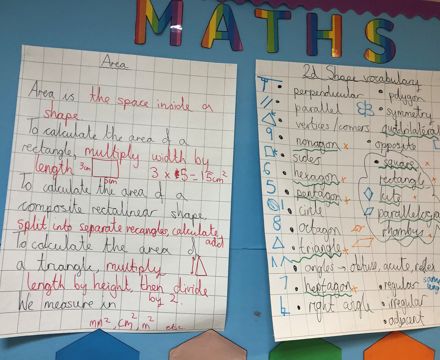 MATHS
Area
Area is the space inside a
shape
To calculate the area of a
rectangle, multiply width by
length 3cm 5cm 3 x 5 = 15cm²
To calculate the area of a
composite rectalinear shape,
split into separate recangles, calculate,
add
To calculate the area of
a triangle, multiply
length by height, then divide
by 2.
We measure in
mm², cm², m² etc.
2d Shape vocabulary
• perpendicular • polygon
• parallel • symmetry
• vertices/corners quadrilateral
9 • nonagon • opposite
• sides • square
6 • hexagon rectangle
5 • pentagon kite
• circle parallelogram
8 • octagon rhombus
• triangle
• angles → obtuse, acute, reflex
7 • heptagon • regular same
• right angle • irregular
• adjacent